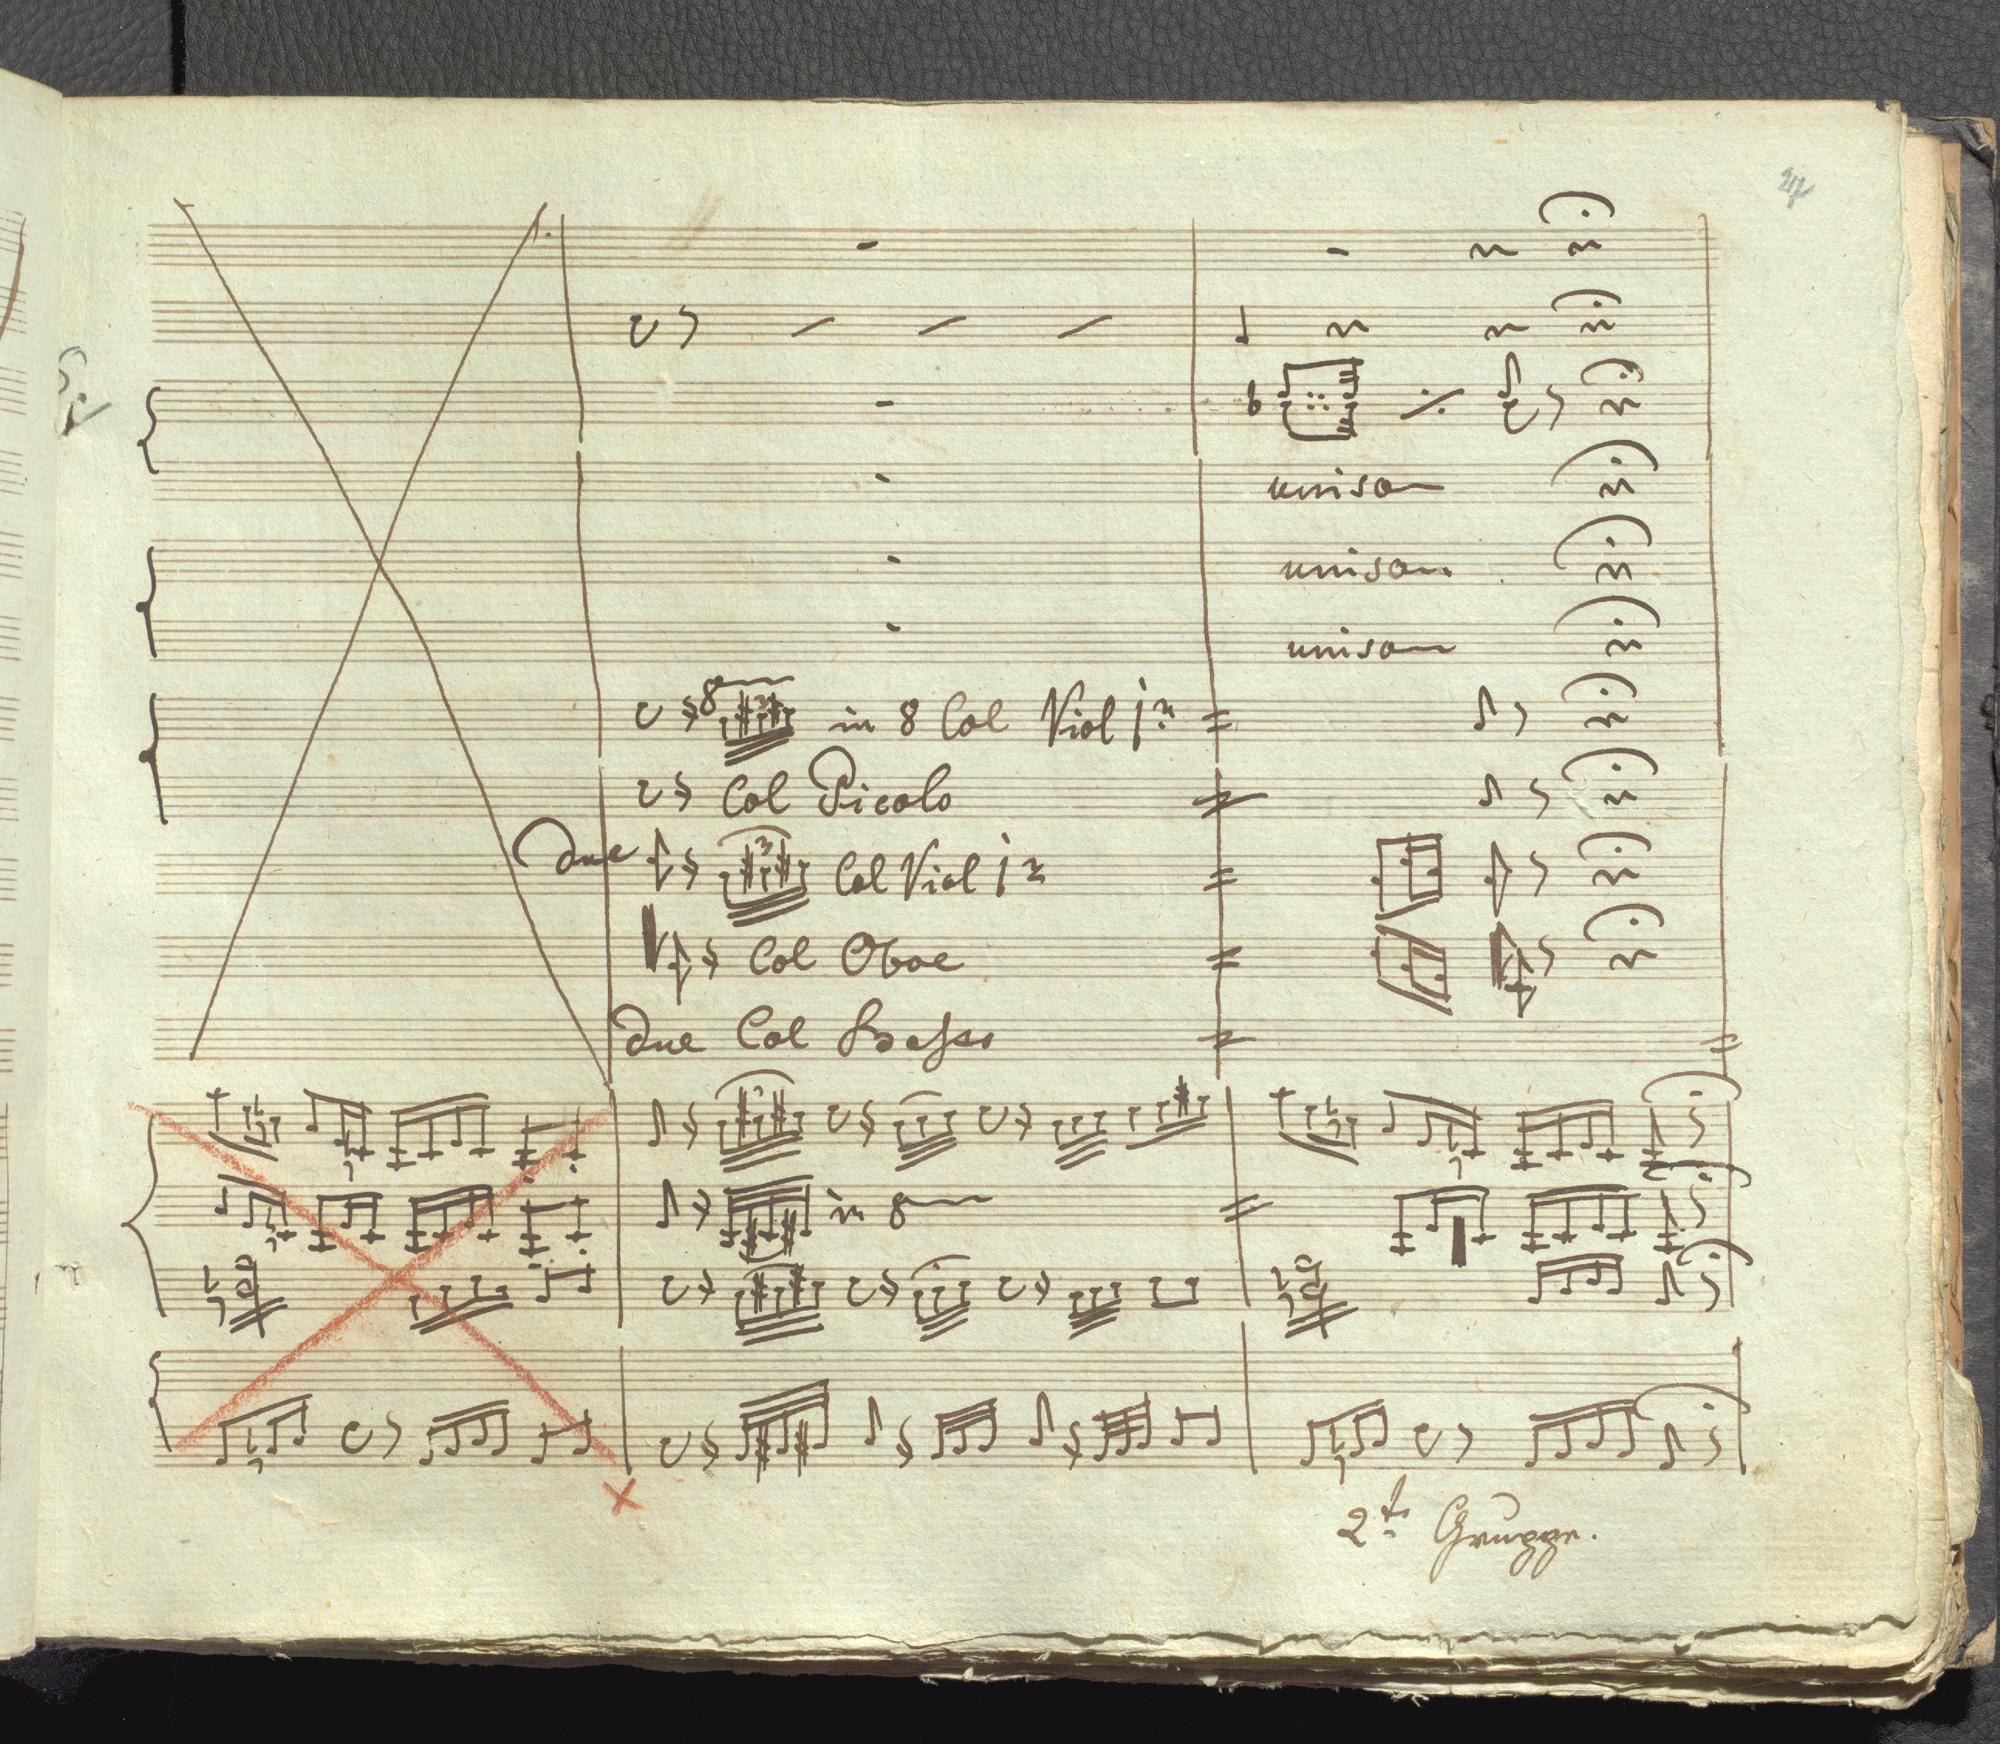 unison
unison
unison
8 in 8 Col Viol 1mo
Col Picolo
due 3 Col Viol 1mo
Col Oboe
due Col Basso
in 8
2te Gruppe.